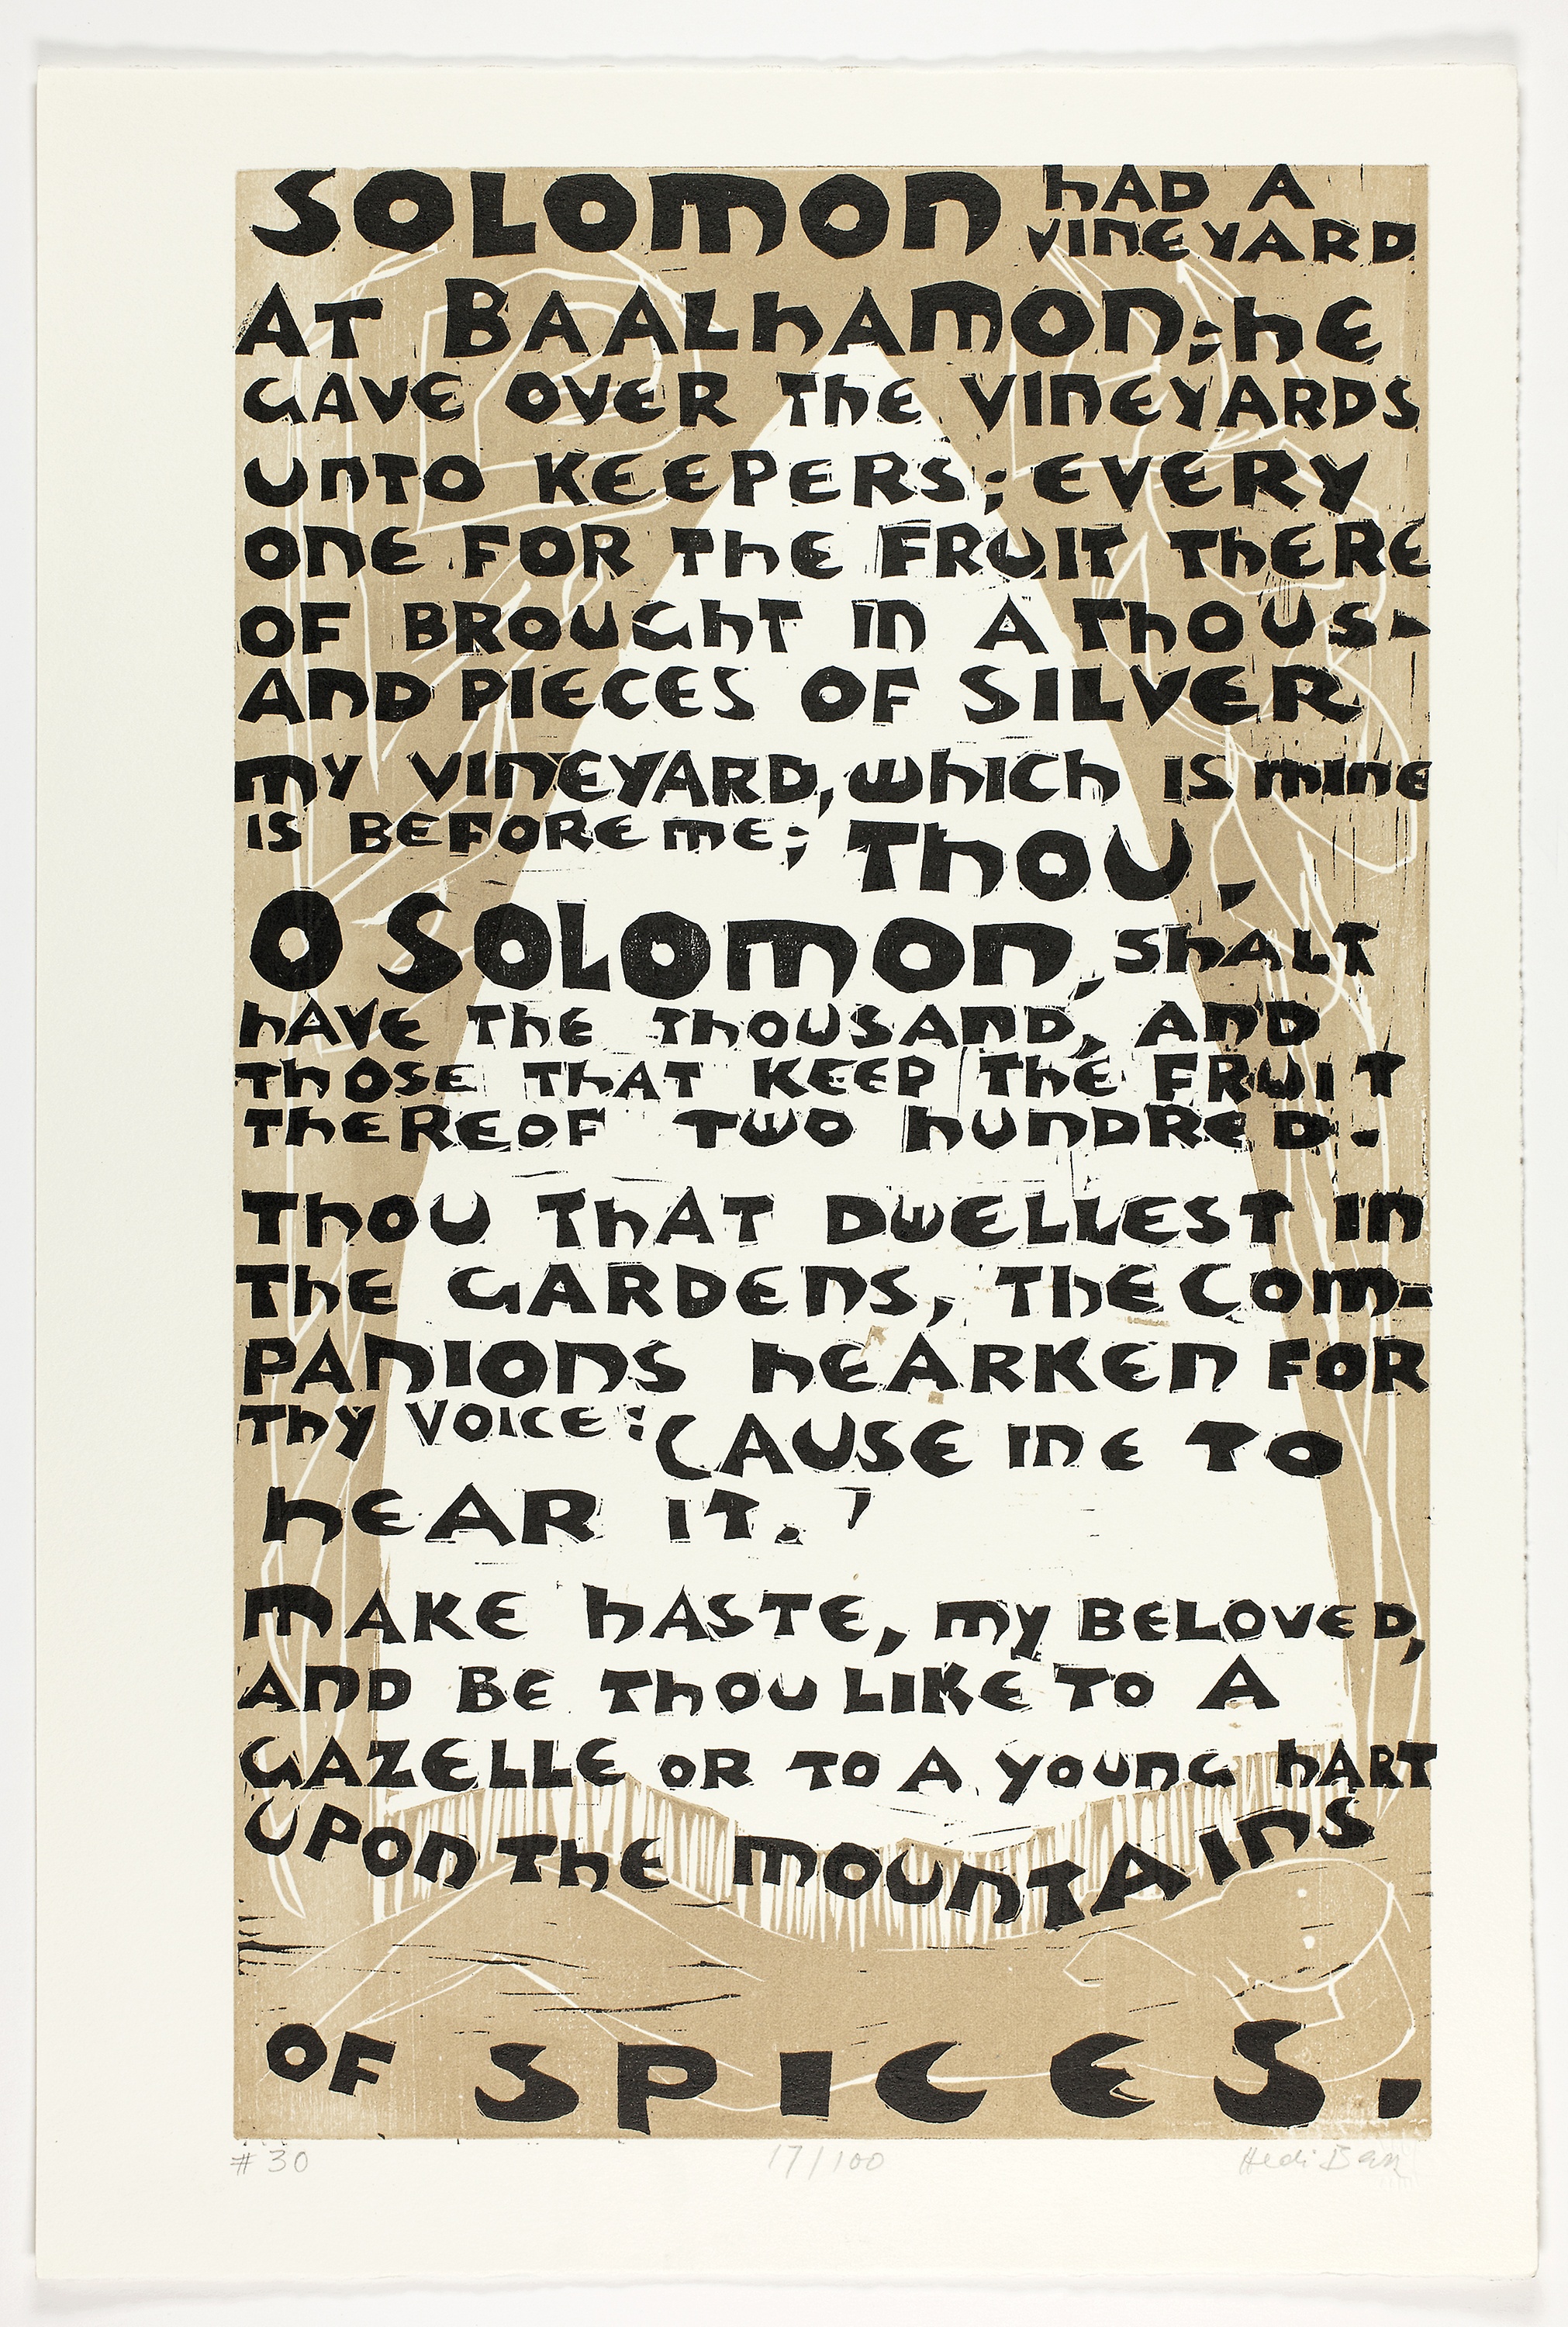 SOLOMON HAD A
VINEYARD
AT BAALHAMON; HE
GAVE OVER THE VINEYARDS
UNTO KEEPERS; EVERY
ONE FOR THE FRUIT THERE
OF BROUGHT IN A THOUS-
AND PIECES OF SILVER
MY VINEYARD, WHICH IS MINE
IS BEFORE ME; THOU,
O SOLOMON, SHALT
HAVE THE THOUSAND, AND
THOSE THAT KEEP THE FRUIT
THEREOF TWO HUNDRED.
THOU THAT DWELLEST IN
THE GARDENS, THE COM-
PANIONS HEARKEN FOR
THY VOICE: 'CAUSE ME TO
HEAR IT.'
MAKE HASTE, MY BELOVED,
AND BE THOU LIKE TO A
GAZELLE OR TO A YOUNG HART
UPON THE MOUNTAINS
OF SPICES.
#30 17/100 Hedi Bak